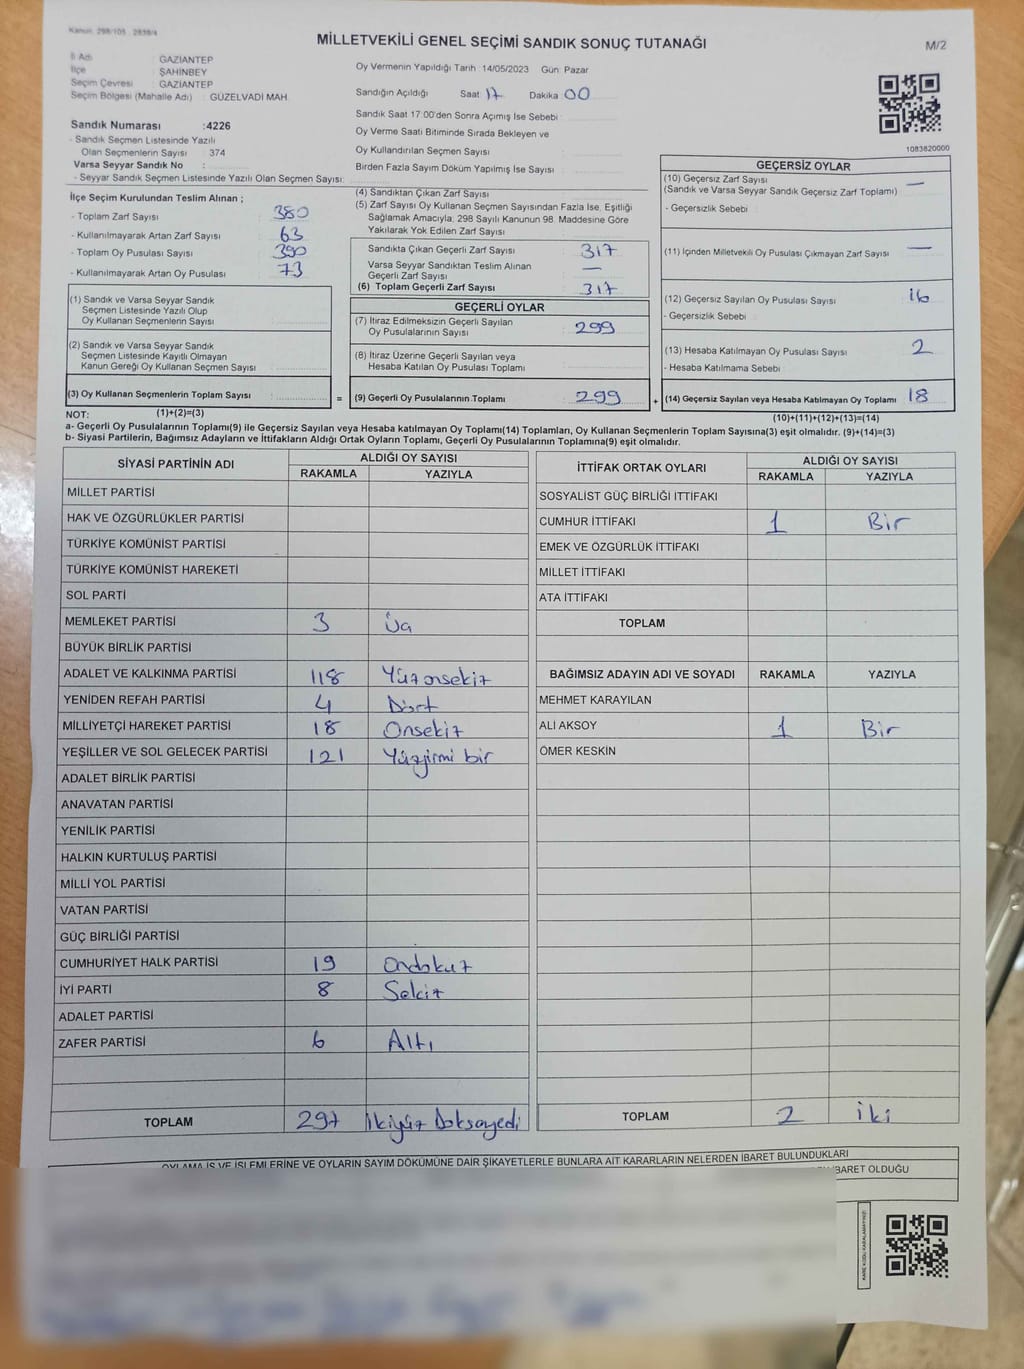 Kanun: 298/105 , 2839/4
MİLLETVEKİLİ GENEL SEÇİMİ SANDIK SONUÇ TUTANAĞI
M/2
İl Adı : GAZİANTEP
İlçe : ŞAHİNBEY
Seçim Çevresi : GAZİANTEP
Seçim Bölgesi (Mahalle Adı) : GÜZELVADİ MAH.
Sandık Numarası :4226
- Sandık Seçmen Listesinde Yazılı
Olan Seçmenlerin Sayısı : 374
Varsa Seyyar Sandık No :
- Seyyar Sandık Seçmen Listesinde Yazılı Olan Seçmen Sayısı:
Oy Vermenin Yapıldığı Tarih 14/05/2023 Gün: Pazar
Sandığın Açıldığı Saat 17 Dakika 00
Sandık Saat 17.00'den Sonra Açımış İse Sebebi :
Oy Verme Saati Bitiminde Sırada Bekleyen ve
Oy Kullandırılan Seçmen Sayısı :
Birden Fazla Sayım Döküm Yapılmış İse Sayısı :
1083820000
İlçe Seçim Kurulundan Teslim Alınan ;
- Toplam Zarf Sayısı : 380
- Kullanılmayarak Artan Zarf Sayısı : 63
- Toplam Oy Pusulası Sayısı : 390
- Kullanılmayarak Artan Oy Pusulası : 73
(1) Sandık ve Varsa Seyyar Sandık
Seçmen Listesinde Yazılı Olup
Oy Kullanan Seçmenlerin Sayısı :
(2) Sandık ve Varsa Seyyar Sandık
Seçmen Listesinde Kayıtlı Olmayan
Kanun Gereği Oy Kullanan Seçmen Sayısı :
(3) Oy Kullanan Seçmenlerin Toplam Sayısı :
(4) Sandıktan Çıkan Zarf Sayısı :
(5) Zarf Sayısı Oy Kullanan Seçmen Sayısından Fazla İse, Eşitliği
Sağlamak Amacıyla, 298 Sayılı Kanunun 98. Maddesine Göre
Yakılarak Yok Edilen Zarf Sayısı :
Sandıkta Çıkan Geçerli Zarf Sayısı : 317
Varsa Seyyar Sandıktan Teslim Alınan
Geçerli Zarf Sayısı : —
(6) Toplam Geçerli Zarf Sayısı : 317
GEÇERLİ OYLAR
(7) İtiraz Edilmeksizin Geçerli Sayılan
Oy Pusulalarının Sayısı : 299
(8) İtiraz Üzerine Geçerli Sayılan veya
Hesaba Katılan Oy Pusulası Toplamı :
= (9) Geçerli Oy Pusulalarının Toplamı : 299
GEÇERSİZ OYLAR
(10) Geçersiz Zarf Sayısı : —
(Sandık ve Varsa Seyyar Sandık Geçersiz Zarf Toplamı)
- Geçersizlik Sebebi :
(11) İçinden Milletvekili Oy Pusulası Çıkmayan Zarf Sayısı : —
(12) Geçersiz Sayılan Oy Pusulası Sayısı : 16
- Geçersizlik Sebebi :
(13) Hesaba Katılmayan Oy Pusulası Sayısı : 2
- Hesaba Katılmama Sebebi :
+ (14) Geçersiz Sayılan veya Hesaba Katılmayan Oy Toplamı : 18
NOT: (1)+(2)=(3)
(10)+(11)+(12)+(13)=(14)
a- Geçerli Oy Pusulalarının Toplamı(9) ile Geçersiz Sayılan veya Hesaba katılmayan Oy Toplamı(14) Toplamları, Oy Kullanan Seçmenlerin Toplam Sayısına(3) eşit olmalıdır. (9)+(14)=(3)
b- Siyasi Partilerin, Bağımsız Adayların ve İttifakların Aldığı Ortak Oyların Toplamı, Geçerli Oy Pusulalarının Toplamına(9) eşit olmalıdır.
SİYASİ PARTİNİN ADI ALDIĞI OY SAYISI
RAKAMLA YAZIYLA
MİLLET PARTİSİ
HAK VE ÖZGÜRLÜKLER PARTİSİ
TÜRKİYE KOMÜNİST PARTİSİ
TÜRKİYE KOMÜNİST HAREKETİ
SOL PARTİ
MEMLEKET PARTİSİ 3 Üç
BÜYÜK BİRLİK PARTİSİ
ADALET VE KALKINMA PARTİSİ 118 Yüzonsekiz
YENİDEN REFAH PARTİSİ 4 Dört
MİLLİYETÇİ HAREKET PARTİSİ 18 Onsekiz
YEŞİLLER VE SOL GELECEK PARTİSİ 121 Yüzyirmi bir
ADALET BİRLİK PARTİSİ
ANAVATAN PARTİSİ
YENİLİK PARTİSİ
HALKIN KURTULUŞ PARTİSİ
MİLLİ YOL PARTİSİ
VATAN PARTİSİ
GÜÇ BİRLİĞİ PARTİSİ
CUMHURİYET HALK PARTİSİ 19 Ondokuz
İYİ PARTİ 8 Sekiz
ADALET PARTİSİ
ZAFER PARTİSİ 6 Altı
TOPLAM 297 İkiyüz Doksanyedi
İTTİFAK ORTAK OYLARI ALDIĞI OY SAYISI
RAKAMLA YAZIYLA
SOSYALİST GÜÇ BİRLİĞİ İTTİFAKI
CUMHUR İTTİFAKI 1 Bir
EMEK VE ÖZGÜRLÜK İTTİFAKI
MİLLET İTTİFAKI
ATA İTTİFAKI
TOPLAM
BAĞIMSIZ ADAYIN ADI VE SOYADI RAKAMLA YAZIYLA
MEHMET KARAYILAN
ALİ AKSOY 1 Bir
ÖMER KESKİN
TOPLAM 2 iki
OYLAMA İŞ VE İŞLEMLERİNE VE OYLARIN SAYIM DÖKÜMÜNE DAİR ŞİKAYETLERLE BUNLARA AİT KARARLARIN NELERDEN İBARET BULUNDUKLARI
İBARET OLDUĞU
KARE KODU KARALAMAYINIZ!